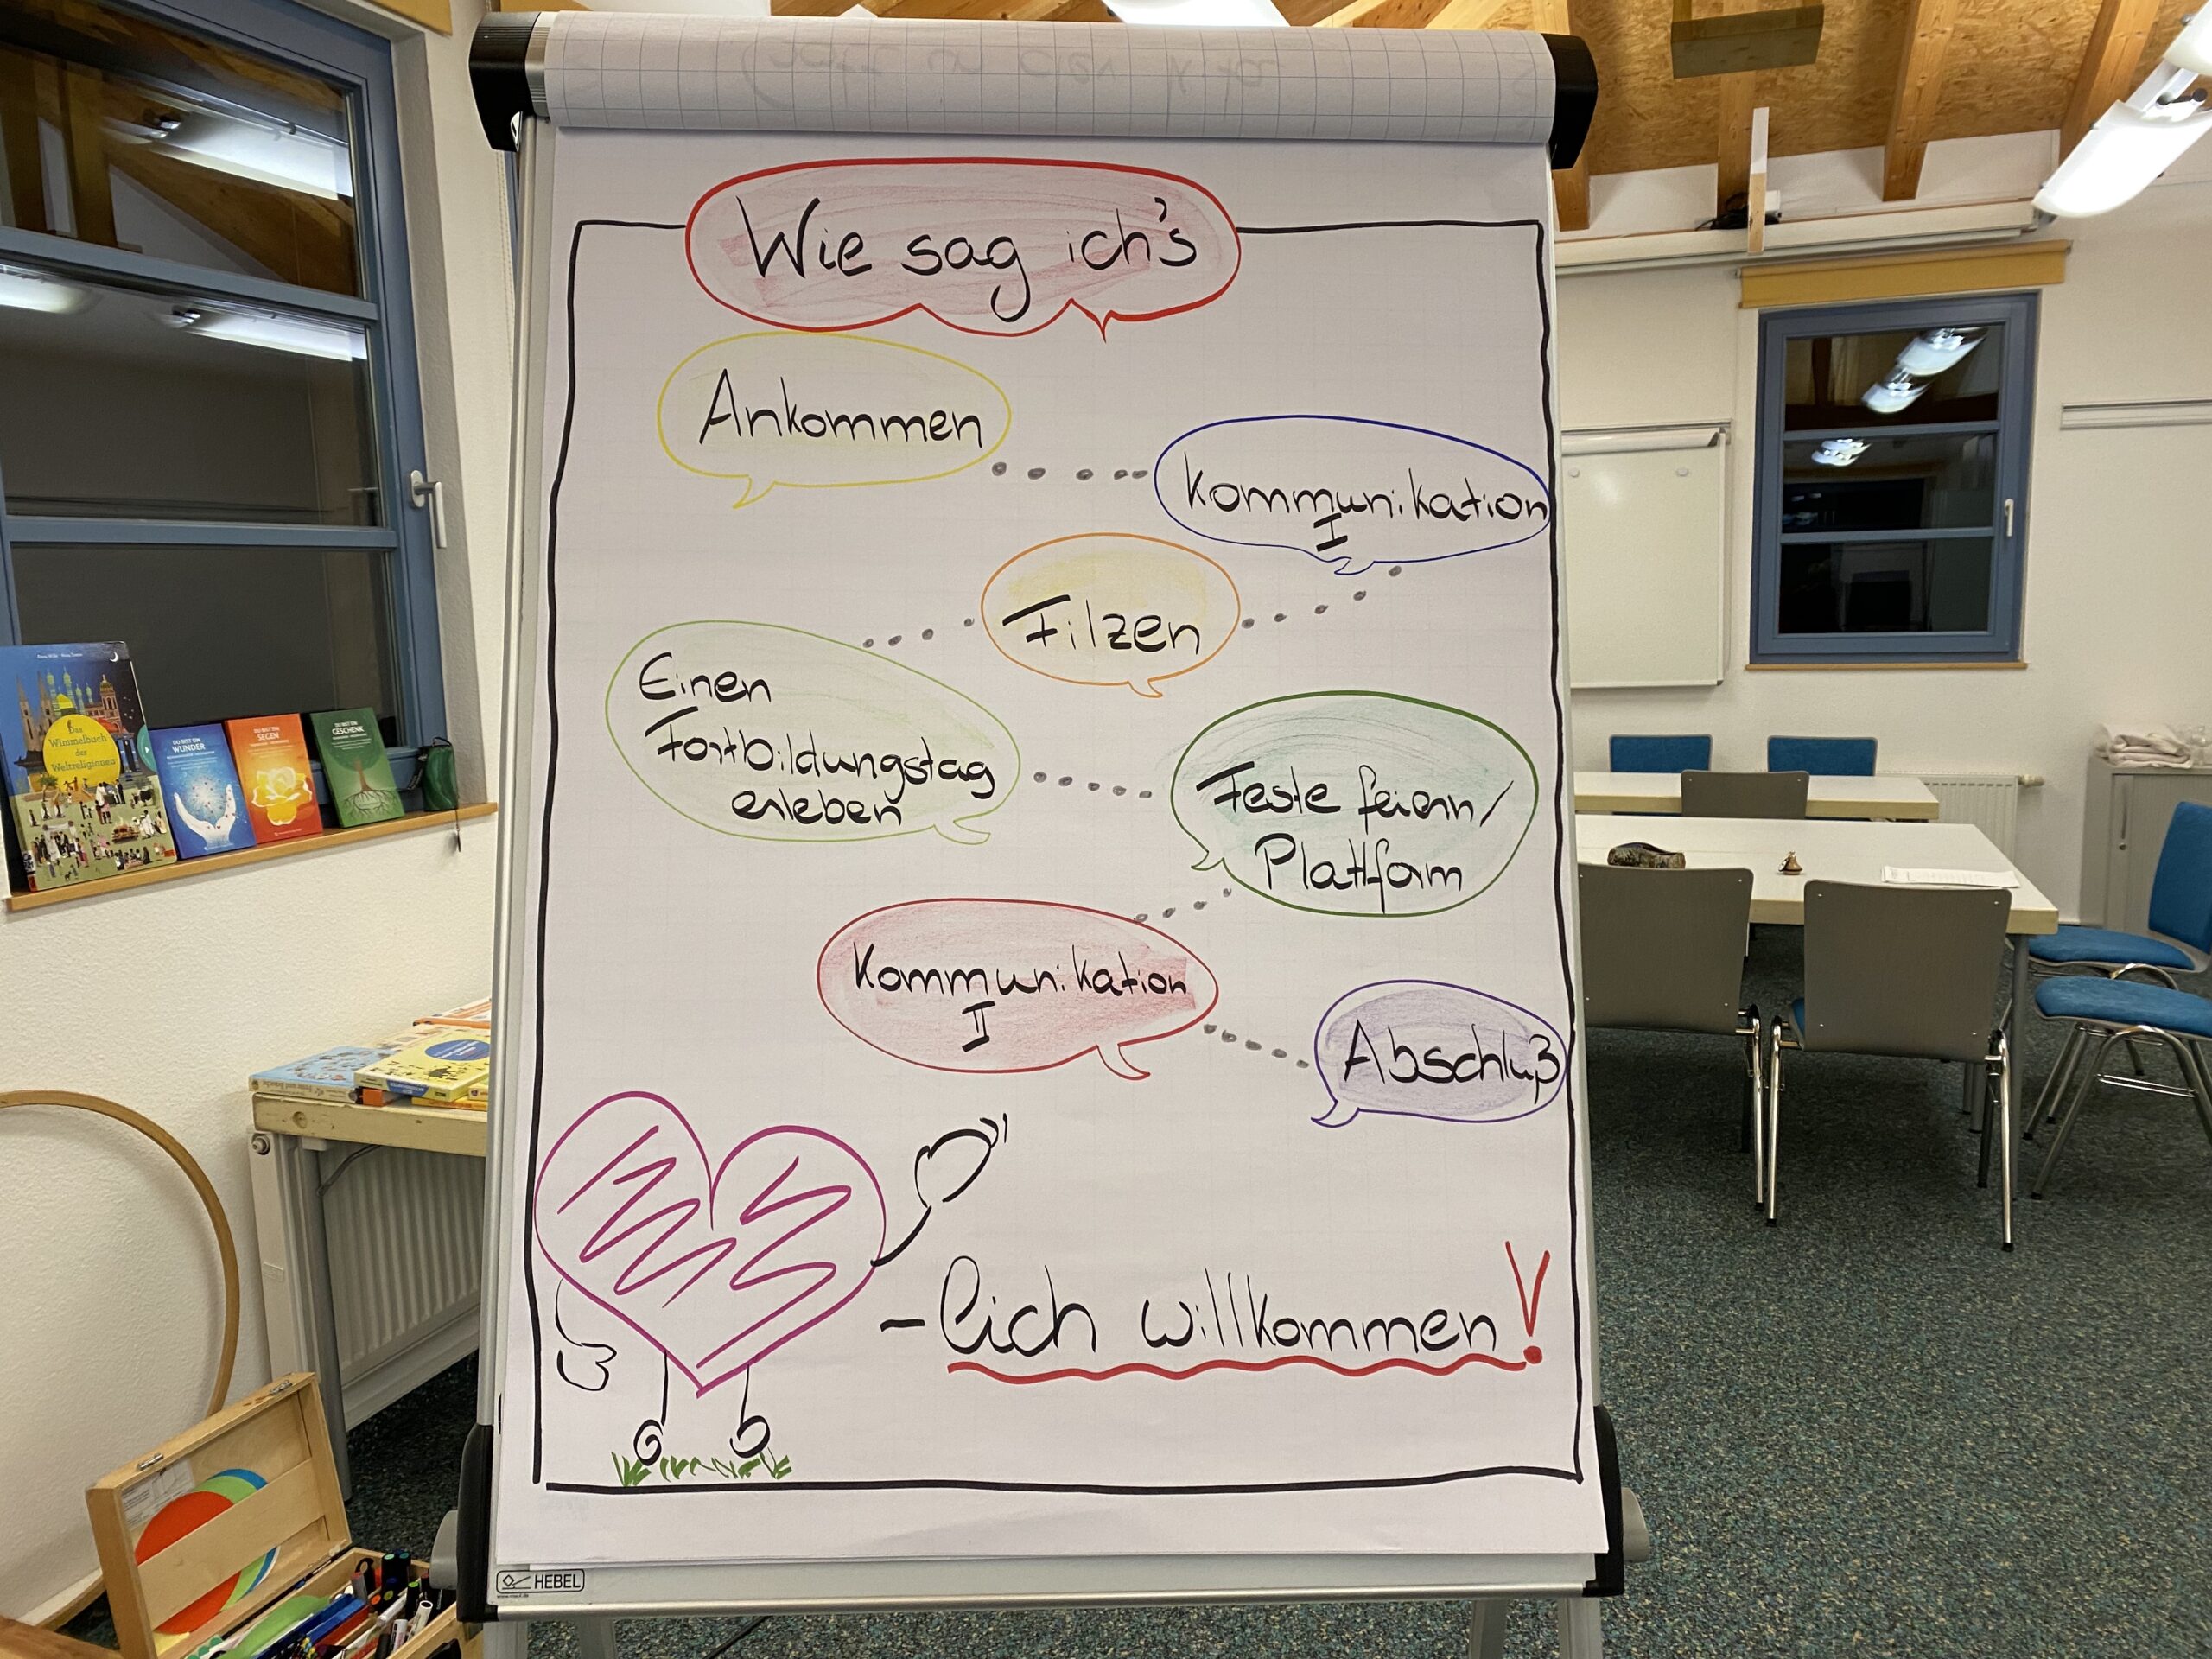 Wie sag ich's
Ankommen
Kommunikation
I
Filzen
Einen
Fortbildungstag
erleben
Feste feiern/
Plattform
Kommunikation
II
Abschluß
-lich willkommen!
HEBEL
Das
Wimmelbuch
der
Weltreligionen
DU BIST EIN
WUNDER
DU BIST EIN
SEGEN
DU BIST EIN
GESCHENK